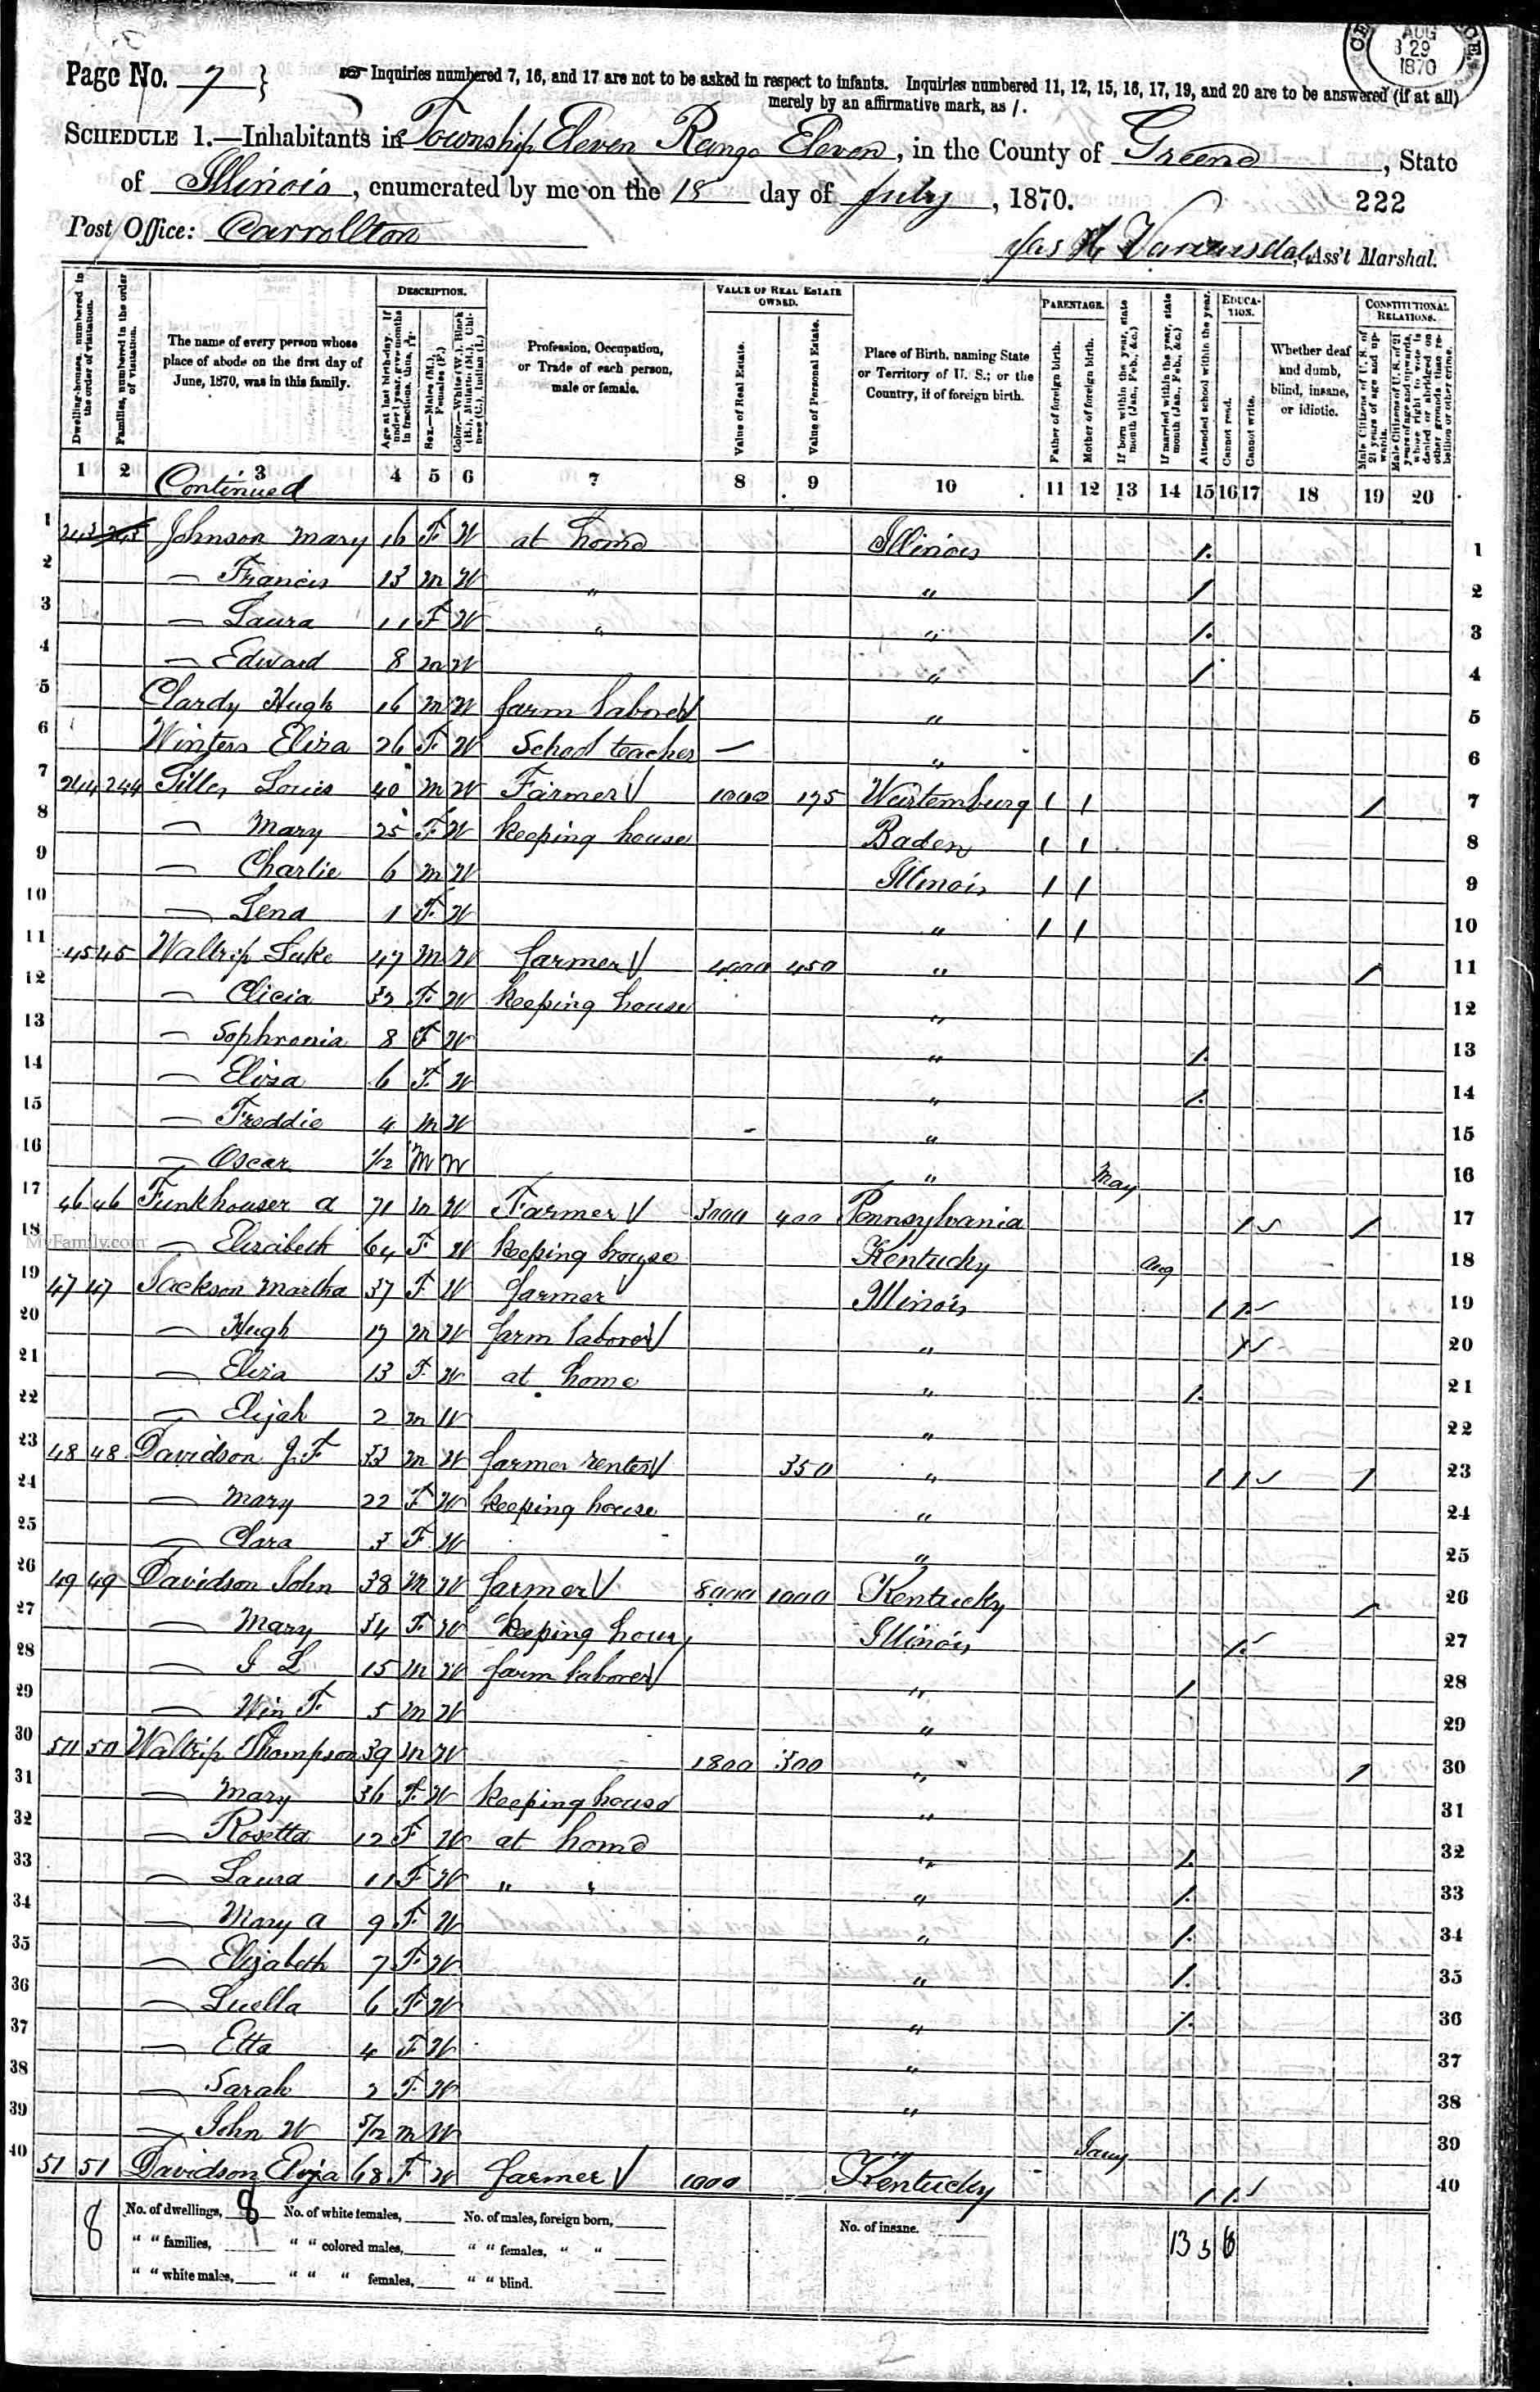 Page No. 7 } Inquiries numbered 7, 16, and 17 are not to be asked in respect to infants. Inquiries numbered 11, 12, 15, 16, 17, 19, and 20 are to be answered (if at all)
merely by an affirmative mark, as /.
AUG 29 1870
SCHEDULE 1.—Inhabitants in Township Eleven Range Eleven, in the County of Greene, State
of Illinois, enumerated by me on the 18 day of July, 1870. 222
Post Office: Carrollton
Jas H Vanarsdale, Ass't Marshal.
Dwelling-houses, numbered in the order of visitation.
Families, numbered in the order of visitation.
The name of every person whose place of abode on the first day of June, 1870, was in this family.
DESCRIPTION.
Age at last birth-day. If under 1 year, give months in fractions, thus,
Sex.—Males (M.), Females (F.)
Color.—White (W.), Black (B.), Mulatto (M.), Chinese (C.), Indian (I.)
Profession, Occupation, or Trade of each person, male or female.
VALUE OF REAL ESTATE OWNED.
Value of Real Estate.
Value of Personal Estate.
Place of Birth, naming State or Territory of U. S.; or the Country, if of foreign birth.
PARENTAGE.
Father of foreign birth.
Mother of foreign birth.
If born within the year, state month (Jan., Feb., &c.)
If married within the year, state month (Jan., Feb., &c.)
Attended school within the year.
EDUCATION.
Cannot read.
Cannot write.
Whether deaf and dumb, blind, insane, or idiotic.
CONSTITUTIONAL RELATIONS.
Male Citizens of U. S. of 21 years of age and upwards.
Male Citizens of U. S. of 21 years of age and upwards, whose right to vote is denied or abridged on other grounds than rebellion or other crime.
1 2 3 4 5 6 7 8 9 10 11 12 13 14 15 16 17 18 19 20
Continued
1 243 243 Johnson Mary 16 F W at home Illinois 1 1
2 — Francis 13 M W " " 1 2
3 — Laura 11 F W " " 1 3
4 — Edward 8 M W " 1 4
5 Clardy Hugh 16 M W farm laborer " 5
6 Winters Eliza 26 F W School teacher — " 6
7 244 244 Louis 40 M W Farmer 1000 175 Wurtemburg 1 1 1 7
8 — Mary 25 F W keeping house Baden 1 1 8
9 — Charlie 6 M W Illinois 1 1 9
10 — Lena 1 F W " 1 1 10
11 45 45 Waltrip Luke 47 M W farmer 4000 450 " 1 11
12 — Clicia 32 F W keeping house " 12
13 — Sophronia 8 F W " 1 13
14 — Eliza 6 F W " 1 14
15 — Freddie 4 M W - " 15
16 — Oscar 1/12 M W " May 16
17 46 46 Funkhouser A 71 M W Farmer 3000 400 Pennsylvania 1 1 17
18 — Elizabeth 64 F W keeping house Kentucky Aug 18
19 47 47 Jackson Martha 37 F W farmer Illinois 1 1 19
20 — Hugh 17 M W farm laborer " 1 20
21 — Eliza 13 F W at home " 1 21
22 — Elijah 2 M W " 22
23 48 48 Davidson J. F 33 M W farmer renter 350 " 1 1 1 23
24 — Mary 22 F W keeping house " 24
25 — Clara 3 F W " 25
26 49 49 Davidson John 38 M W farmer 8000 1000 Kentucky 1 26
27 — Mary 34 F W keeping house Illinois 1 27
28 — J L 15 M W farm laborer " 1 28
29 — Win F. 5 M W " 29
30 50 50 Waltrip Thompson 39 M W 1800 300 " 1 30
31 — Mary 36 F W keeping house " 31
32 — Rosetta 12 F W at home " 1 32
33 — Laura 11 F W " " " 1 33
34 — Mary A 9 F W " 1 34
35 — Elizabeth 7 F W " 1 35
36 — Luella 6 F W " 1 36
37 — Etta 4 F W " 37
38 — Sarah 2 F W " 38
39 — John W 5/12 M W " Jany 39
40 51 51 Davidson 68 F W farmer 1000 Kentucky 1 1 40
MyFamily.com
8 No. of dwellings, 8 No. of white females, No. of males, foreign born, No. of insane. 13 3 6
" " families, " " colored males, " " females, " "
" " white males, " " " females, " " blind.